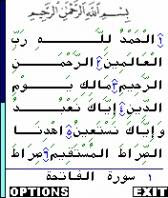 بِسْمِ اللَّهِ الرَّحْمَٰنِ الرَّحِيمِ
الْحَمْدُ لِلَّهِ رَبِّ
الْعَالَمِينَ الرَّحْمَنِ
الرَّحِيمِ مَالِكِ يَوْمِ
الدِّينِ إِيَّاكَ نَعْبُدُ
وَإِيَّاكَ نَسْتَعِينُ اهْدِنَا
الصِّرَاطَ الْمُسْتَقِيمَ صِرَاطَ
١ سورة الفاتحة
OPTIONS EXIT